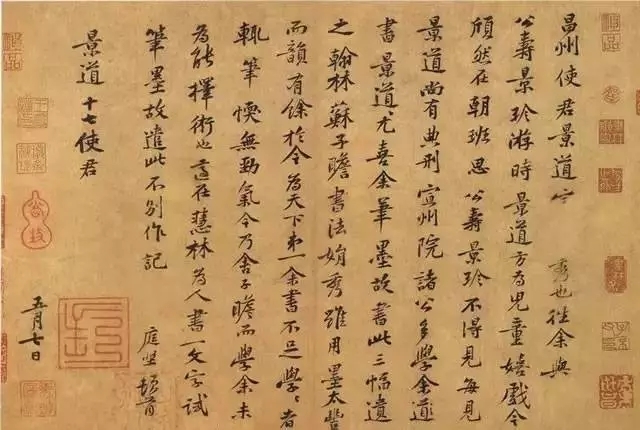 昌州使君景道宗秀也往余與
公壽景珍游時景道方為兒童嬉戲今
頎然在朝班思公壽景珍不得見每見
景道尚有典刑宣州院諸公多學余
書景道尤喜余筆墨故書此三幅遺
之翰林蘇子瞻書法娟秀雖用墨太豐
而韻有餘於今為天下第一余書不足學々者
輒筆愞無勁氣今乃舍子瞻而學余未
為能擇術也適在慧林為人書一文字試
筆墨故遣此不別作記 庭堅頓首
景道十七使君
五月七日